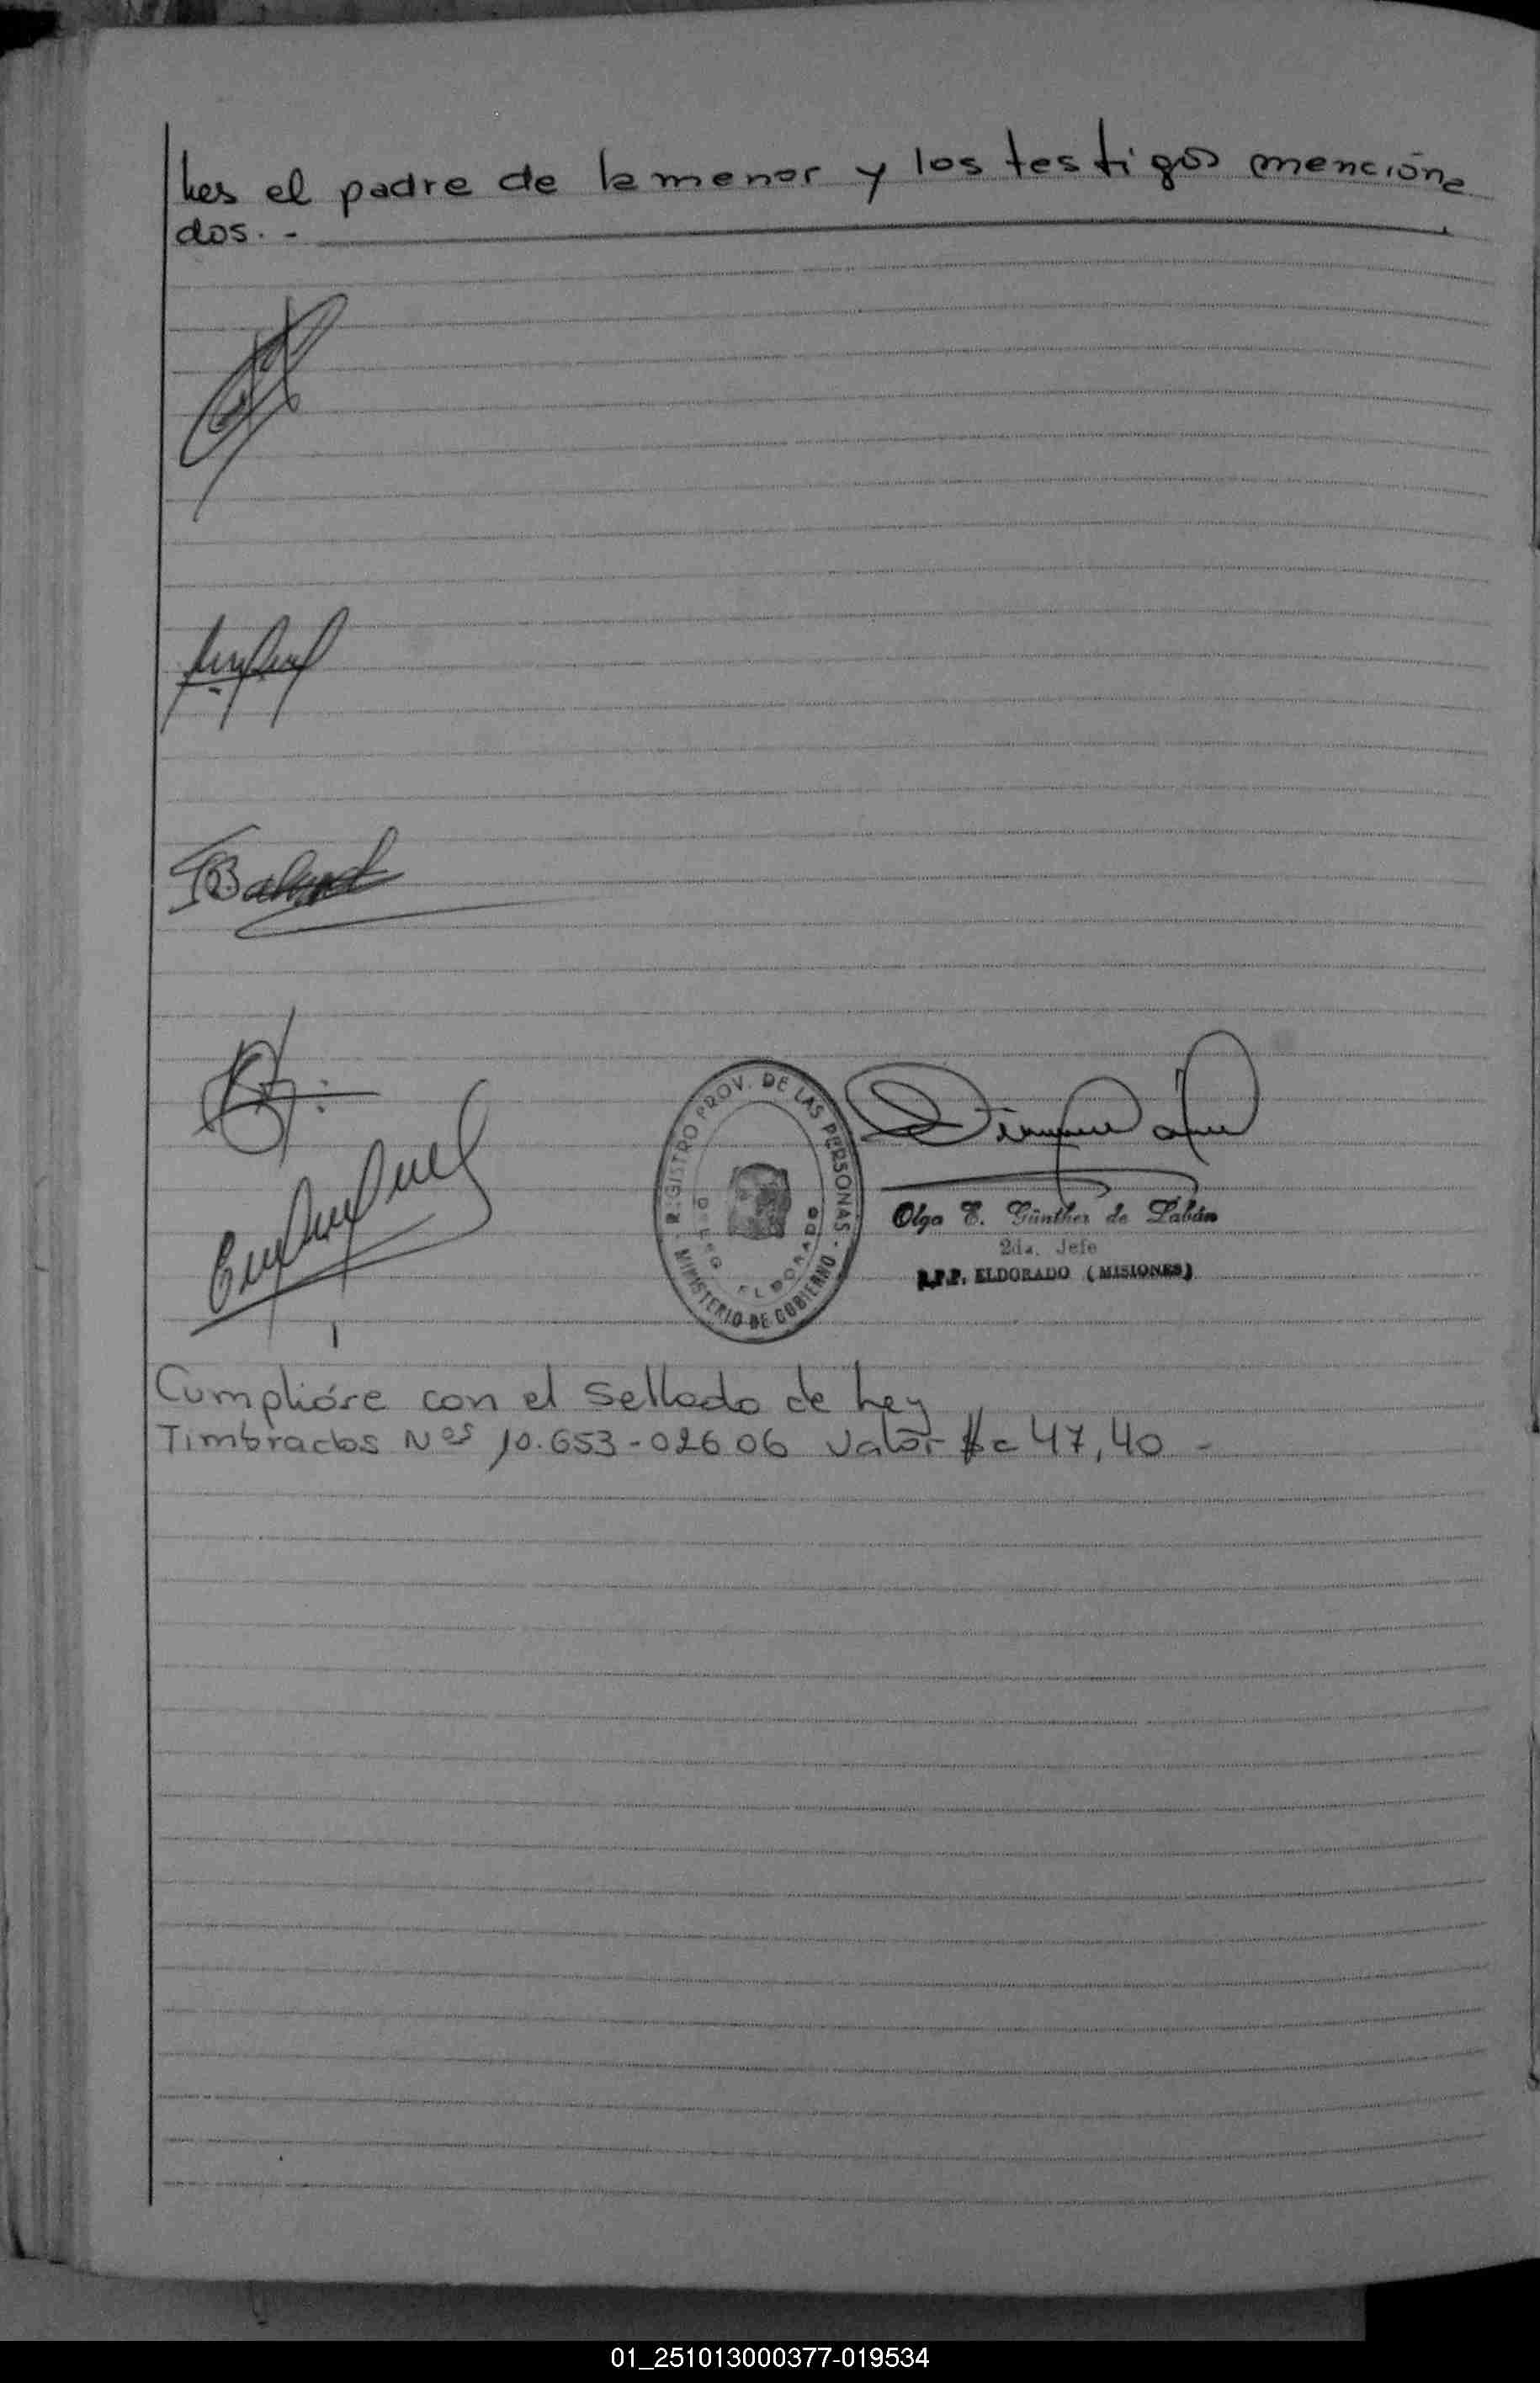 tes el padre de la menor y los testigos menciona
dos. -
REGISTRO PROV. DE LAS PERSONAS - MINISTERIO DE GOBIERNO -
ELDORADO
Olga E. Günther de Labán
2da. Jefe
R.P.P. ELDORADO (MISIONES)
Cumplióse con el sellado de Ley
Timbrados Nos 10.653-02606 Valor $a 47,40 -
01_251013000377-019534